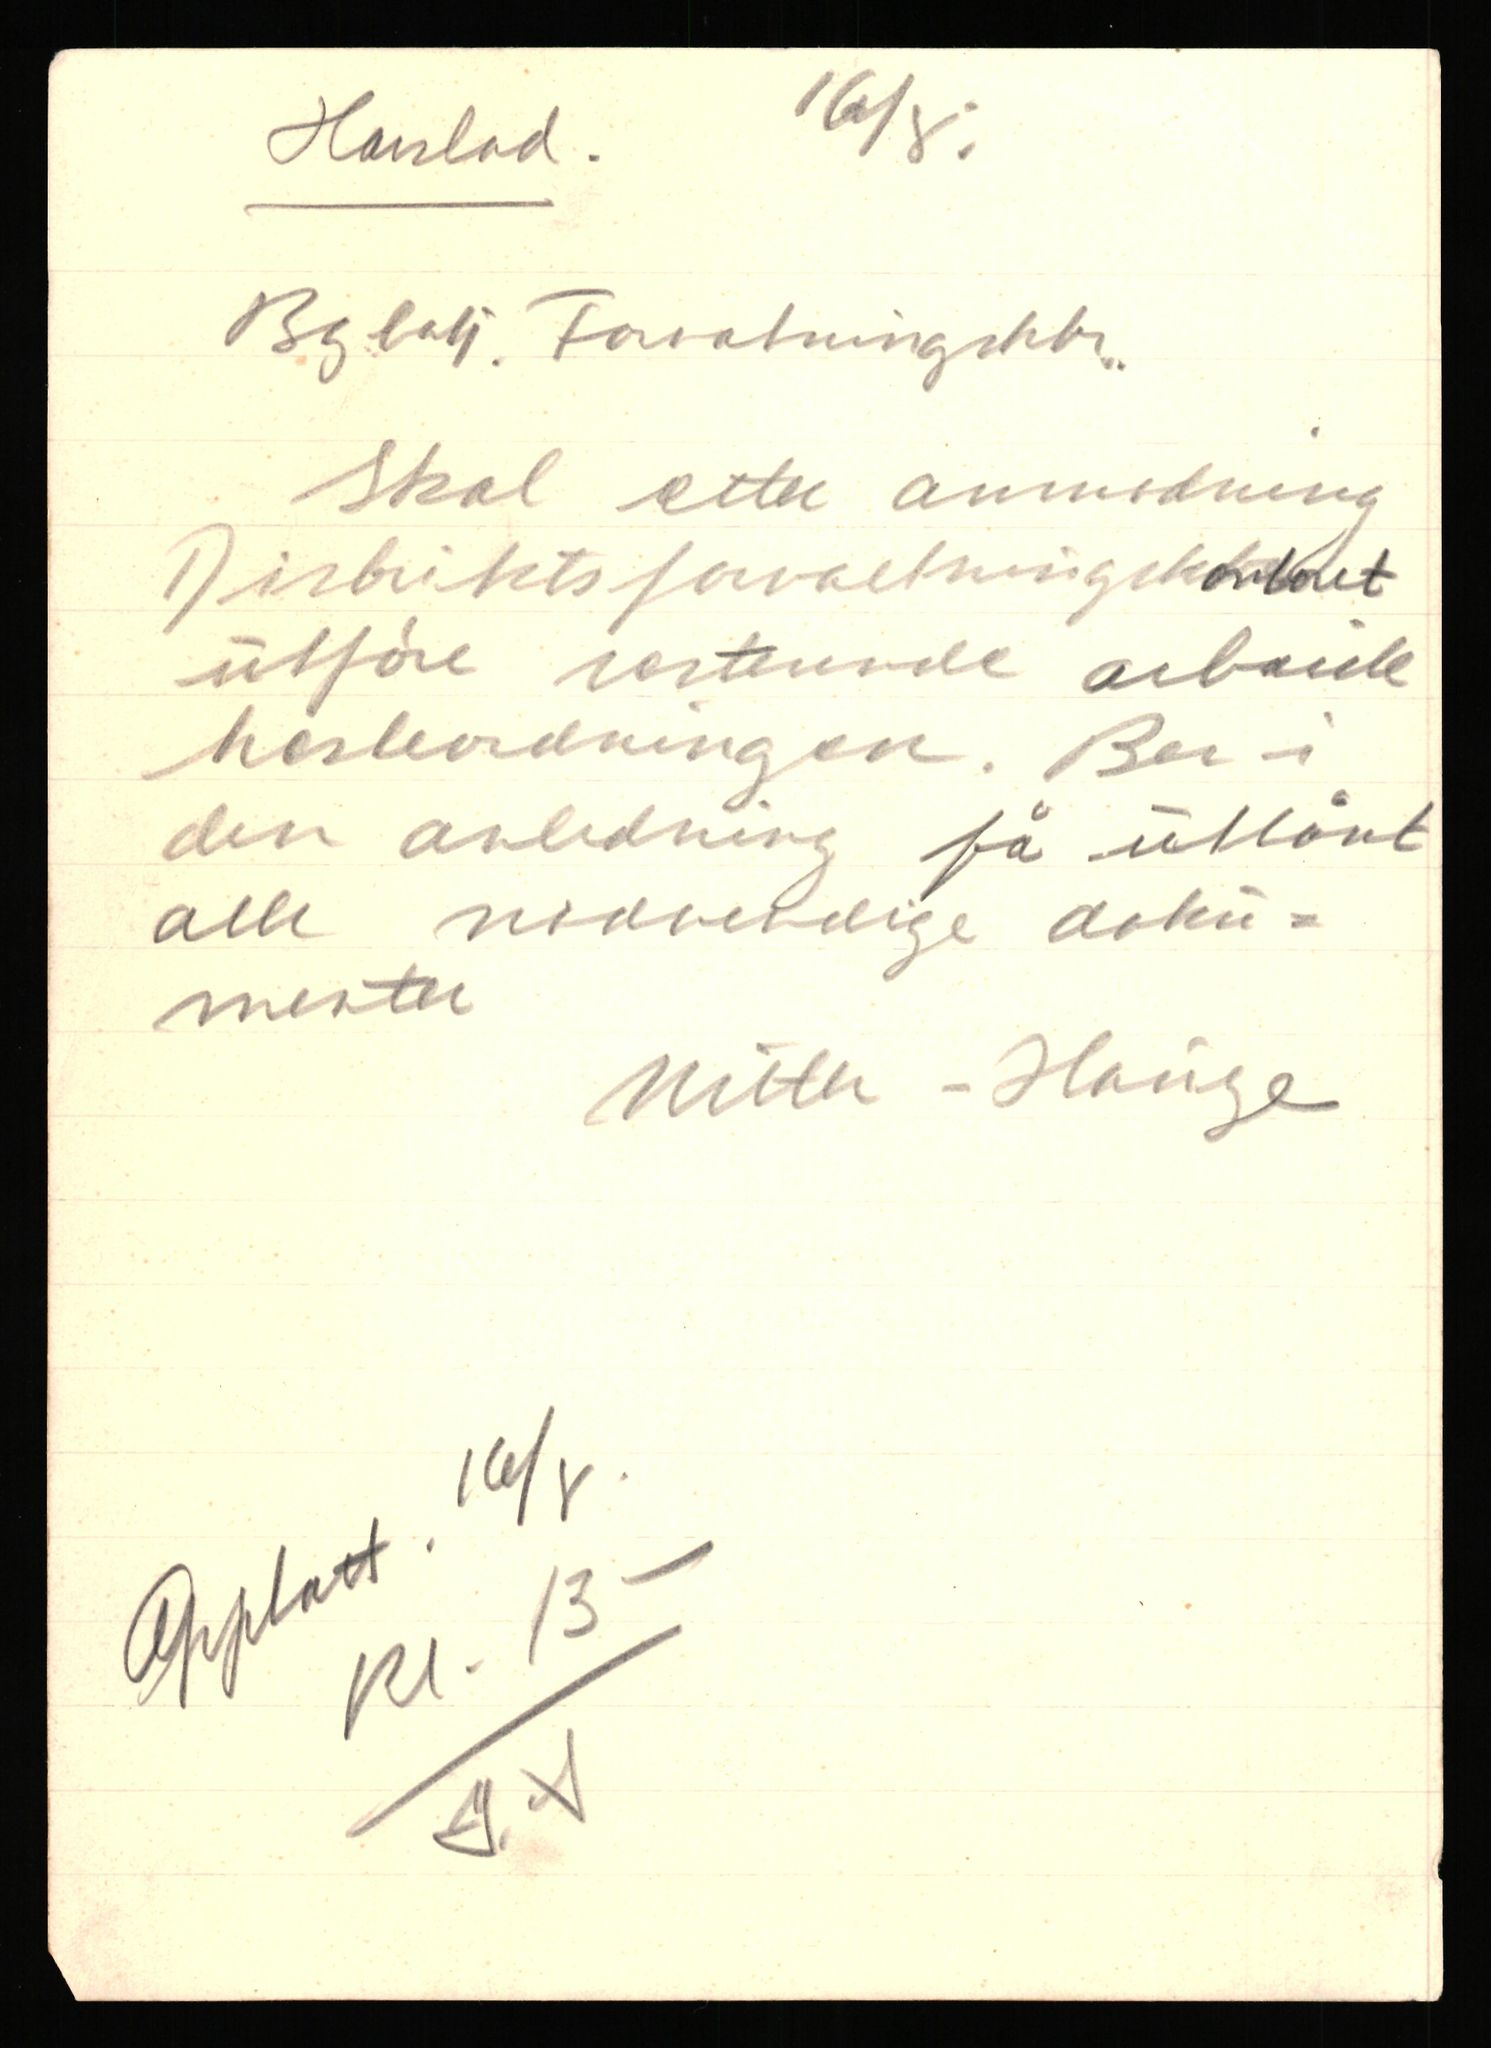 Harstad. 16/8.
Bg batj. Forvaltningsktr..
Skal etter anmodning
Distriktsforvaltningskontoret
ütføre resterende arbeide
hesteordningen. Ber i
den anledning få ütlånt
alle nødvendige dokü=
menter
Nitter - Haüge
Opplatt. 16/8.
Kl. 13-